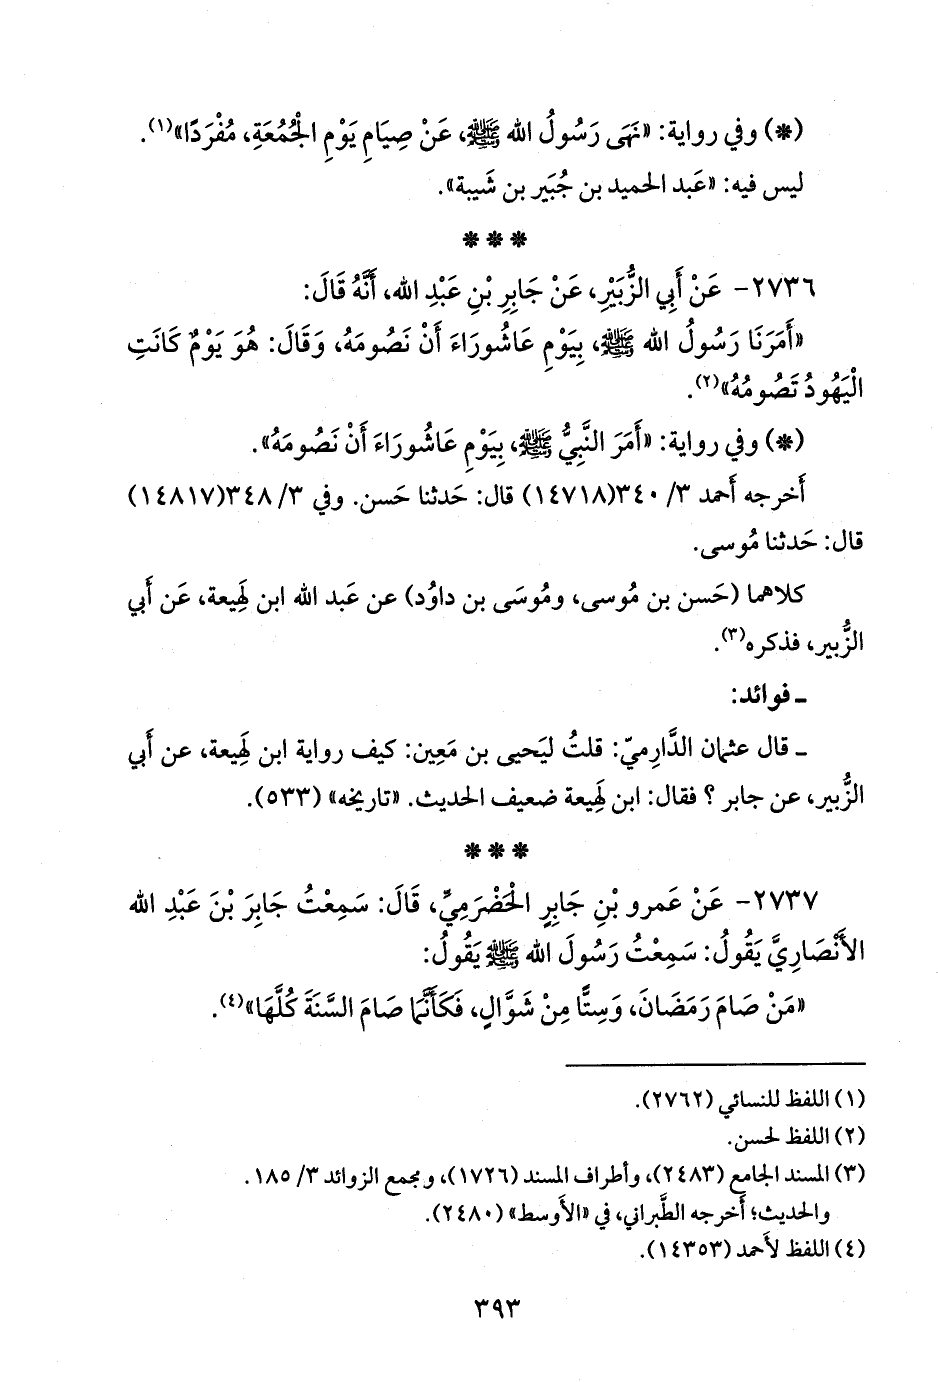 (*) وفي رواية: «نَهَى رَسُولُ الله ﷺ، عَنْ صِيَامِ يَوْمِ الْجُمُعَةِ، مُفْرَدًا»(١).
ليس فيه: «عَبد الحميد بن جُبَير بن شَيبة».
* * *
٢٧٣٦- عَنْ أَبِي الزُّبَيْرِ، عَنْ جَابِرِ بْنِ عَبْدِ الله، أَنَّهُ قَالَ:
«أَمَرَنَا رَسُولُ الله ﷺ، بِيَوْمِ عَاشُورَاءَ أَنْ نَصُومَهُ، وَقَالَ: هُوَ يَوْمٌ كَانَتِ
الْيَهُودُ تَصُومُهُ»(٢).
(*) وفي رواية: «أَمَرَ النَّبِيُّ ﷺ، بِيَوْمِ عَاشُورَاءَ أَنْ نَصُومَهُ».
أَخرجه أَحمد ٣/ ٣٤٠(١٤٧١٨) قال: حَدثنا حَسن. وفي ٣/ ٣٤٨(١٤٨١٧)
قال: حَدثنا مُوسى.
كلاهما (حَسن بن مُوسى، ومُوسَى بن داوُد) عن عَبد الله ابن لَهِيعة، عَن أَبي
الزُّبير، فذكره(٣).
ـ فوائد:
ـ قال عثمان الدَّارِميّ: قلتُ ليَحيى بن مَعِين: كيف رواية ابن لَهِيعة، عن أَبي
الزُّبير، عن جابر ؟ فقال: ابن لَهِيعة ضعيف الحديث. «تاريخه» (٥٣٣).
* * *
٢٧٣٧- عَنْ عَمرو بْنِ جَابِرٍ الْحَضْرَمِيِّ، قَالَ: سَمِعْتُ جَابِرَ بْنَ عَبْدِ الله
الأَنْصَارِيَّ يَقُولُ: سَمِعْتُ رَسُولَ الله ﷺ يَقُولُ:
«مَنْ صَامَ رَمَضَانَ، وَسِتًّا مِنْ شَوَّالٍ، فَكَأَنَّمَا صَامَ السَّنَةَ كُلَّهَا»(٤).
(١) اللفظ للنسائي (٢٧٦٢).
(٢) اللفظ لحسن.
(٣) المسند الجامع (٢٤٨٣)، وأطراف المسند (١٧٢٦)، ومجمع الزوائد ٣/ ١٨٥.
والحديث؛ أَخرجه الطَّبراني، في «الأَوسط» (٢٤٨٠).
(٤) اللفظ لأَحمد (١٤٣٥٣).
٣٩٣